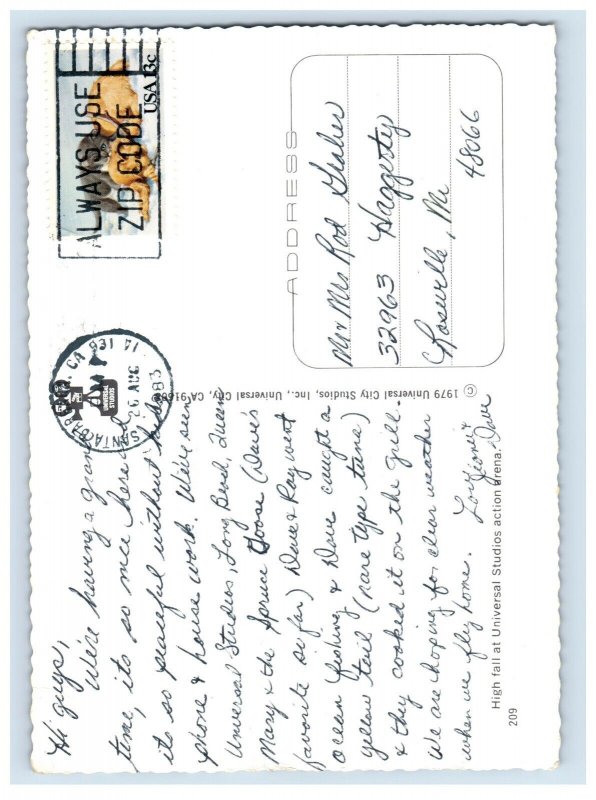 Hi guys,
We're having a grand
time, its so nice here and
its so peaceful without kids,
phone & house work. We've seen
Universal Studios, Long Beach, Queen
Mary & the Spruce Goose (Dave's
favorite so far) Dave & Ray went
ocean fishing & Dave caught a
yellow tail (rare type tuna)
& they cooked it on the grill.
We are hoping for clear weather
when we fly home.
Love
&
Dave
High fall at Universal Studios action arena.
209
© 1979 Universal City Studios, Inc., Universal City, CA 91608
UNIVERSAL
STUDIOS
SANTA CA
26 AUG
1983
ALWAYS USE
ZIP CODE
USA 13c
ADDRESS
Mr & Mrs Rod
32963 Haggerty
Roseville, Mi
48066